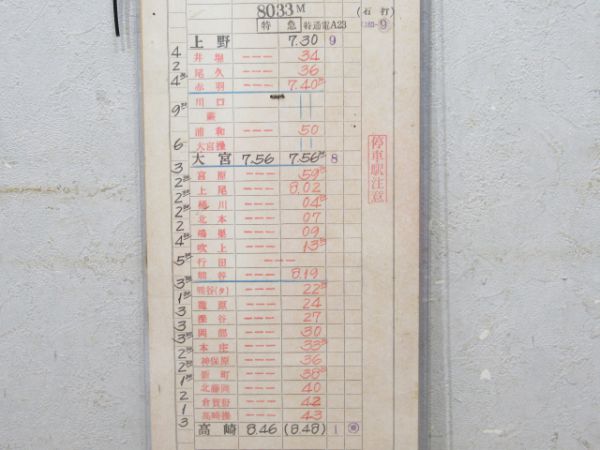 8033M (石打)
特 急 特通電A23 9
上野 7.30 9
4 井堀 --- 34
2 尾久 --- 36
赤羽 --- 7.40
川口 ||
蕨
浦和 --- 50
6 大宮操 ||
大宮 7.56 7.56 8
3 宮原 --- 59
上尾 --- 8.02
桶川 --- 04
北本 --- 07
2 鴻巣 --- 09
吹上 --- 13
行田 ---
熊谷 --- 8.19
熊谷(タ) --- 22
籠原 --- 24
3 深谷 --- 27
3 岡部 --- 30
本庄 --- 33
神保原 --- 36
新町 --- 38
北藤岡 --- 40
2 倉賀野 --- 42
1 高崎操 --- 43
3 高崎 8.46 (8.48) 1
停車駅注意